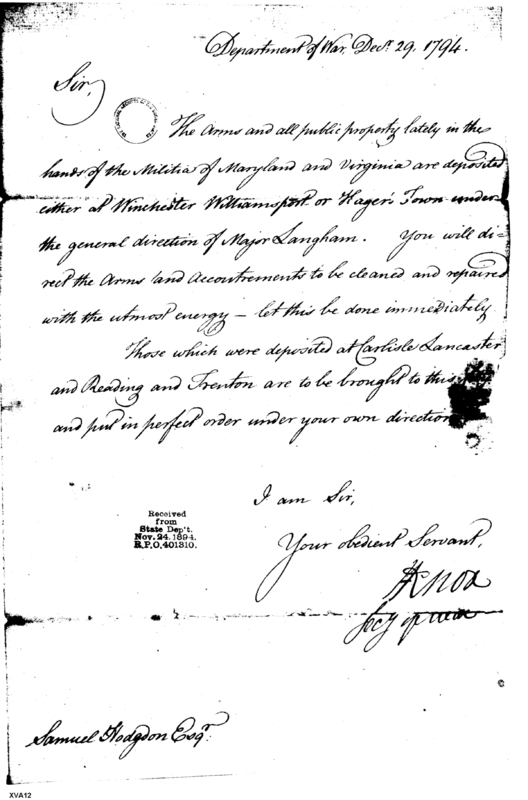 Department of War, Decr. 29. 1794.
Sir,
The Arms and all public property lately in the
hands of the Militia of Maryland and Virginia are deposited
either at Winchester Williamsport or Hager's Town under
the general direction of Major Langham. You will di=
rect the Arms and Accoutrements to be cleaned and repaired
with the utmost energy — let this be done immediately
Those which were deposited at Carlisle Lancaster
and Reading and Trenton are to be brought to this
and put in perfect order under your own direction
I am Sir,
Your obedient Servant,
HKnox
Secy of War
Received
from
State Dep't.
Nov. 24. 1894.
R.P.O. 401310.
Samuel Hodgdon Esqr.
XVA12